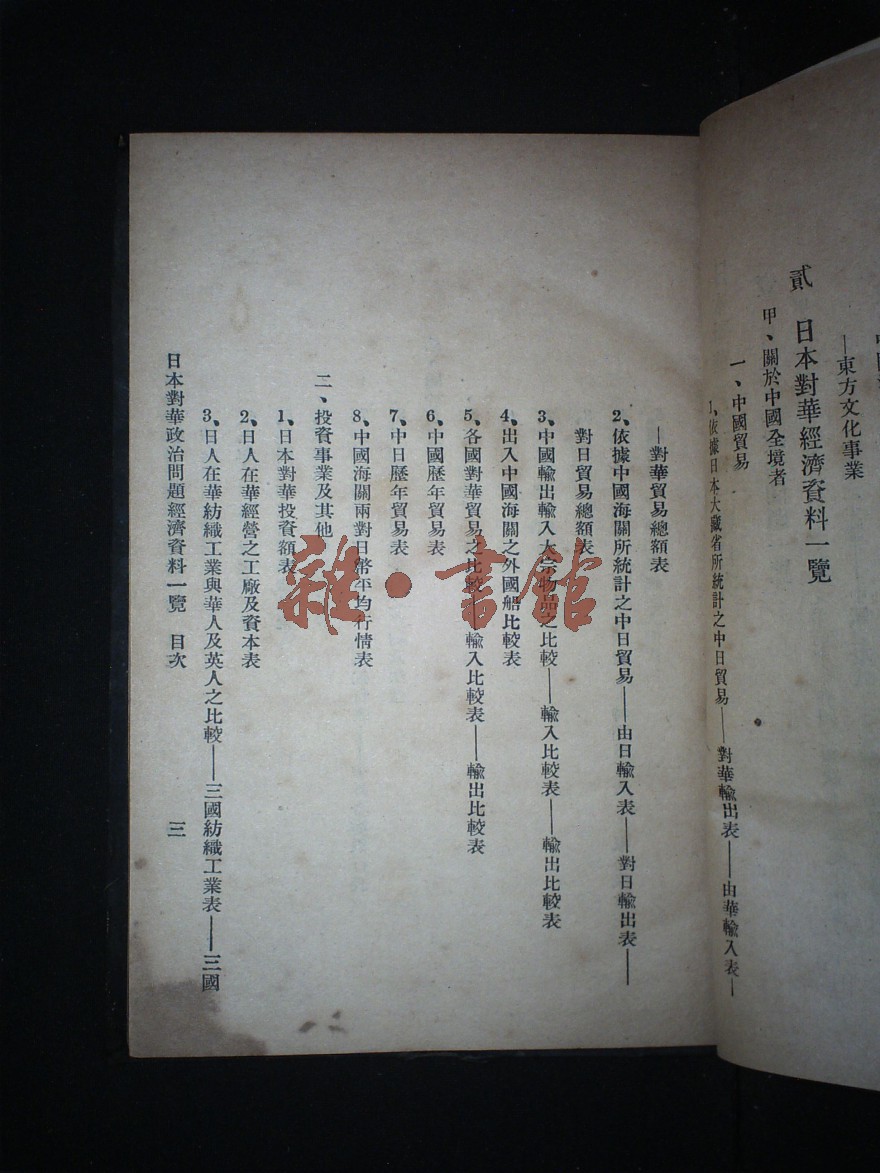 —東方文化事業
貳　日本對華經濟資料一覽
甲、關於中國全境者
一、中國貿易
1、依據日本大藏省所統計之中日貿易——對華輸出表——由華輸入表—
—對華貿易總額表
2、依據中國海關所統計之中日貿易——由日輸入表——對日輸出表——
對日貿易總額表
3、中國輸出輸入大宗物品之比較——輸入比較表——輸出比較表
4、出入中國海關之外國船比較表
5、各國對華貿易之比較——輸入比較表——輸出比較表
6、中國歷年貿易表
7、中日歷年貿易表
8、中國海關兩對日幣平均行情表
二、投資事業及其他
1、日本對華投資額表
2、日人在華經營之工廠及資本表
3、日人在華紡織工業與華人及英人之比較——三國紡織工業表——三國
日本對華政治問題經濟資料一覽　目次　三
雜·書館